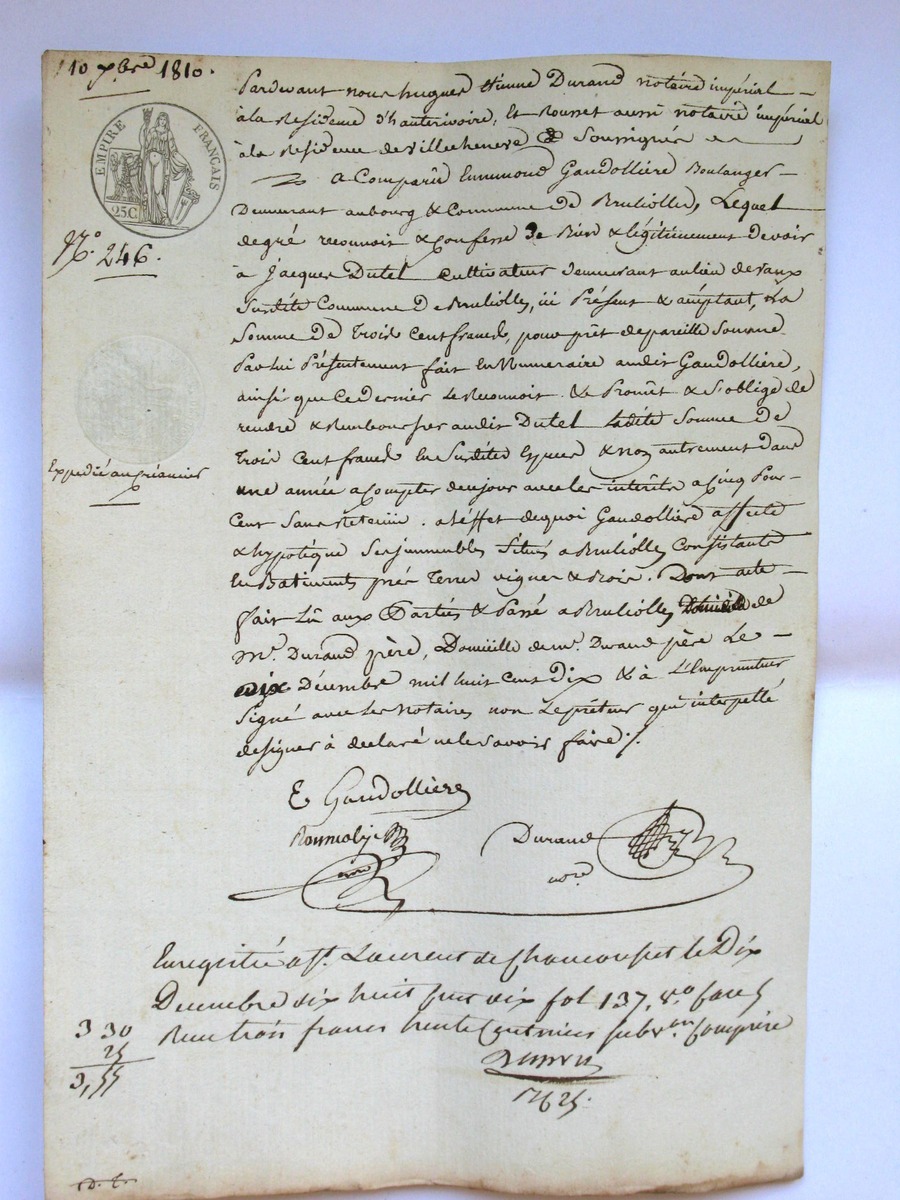 10 xbre 1810.
EMPIRE FRANÇAIS
25C.
N.° 246.
Expedié au créancier
Pardevant nous hugues Etienne Durand notaire impérial
à la Residence d'hauterivoire, Et Rousset aussi notaire impérial
à la Residence de villechenève Soussignés
a Comparû Ennemond Gaudollière Boulanger
Demeurant au bourg & Commune De Brulliolles, Lequel
degré reconnoit & Confesse De Bien & légitimement Devoir
à Jacques Dutel cultivateur demeurant au lieu de vaux
Susdite Commune De Brulliolles, ici Présent & acceptant, La
Somme De Trois Cent francs, pour prêt de pareille Somme
Par lui Présentement fait En Numeraire audit Gaudollière,
ainsi que Ce Dernier Le Reconnoit & Promêt & S'oblige de
rendre & Rembourser audit Dutel Ladite Somme De
Trois Cent francs En Susdites Especes & non autrement dans
une année a Compter de ce jour avec les intérêts a Cinq Pour
Cent Sans Retenue. a l'éffet de quoi Gaudollière affecte
& hypotèque Ses immeubles Situés a Brulliolles Consistants
En Batiments prés Terres vignes & Bois. Dont acte
fait Lû aux Parties & Passé a Brulliolles Domicile de
Mr. Durand père, Domicille de mr. Durand père Le
Dix Décembre mil huit Cent Dix & à L'Emprunteur
Signé avec Les Notaires non Le prêteur qui interpellé
de signer à déclaré ne le Savoir faire ./.
E Gaudollière
Durand
nore
Enregistré a St. Laurent de Chamousset le Dix
Decembre dix huit cent dix fol 137, vo Case 5
Reçu trois francs trente Centimes subvon Comprise
3 30
25
3,55